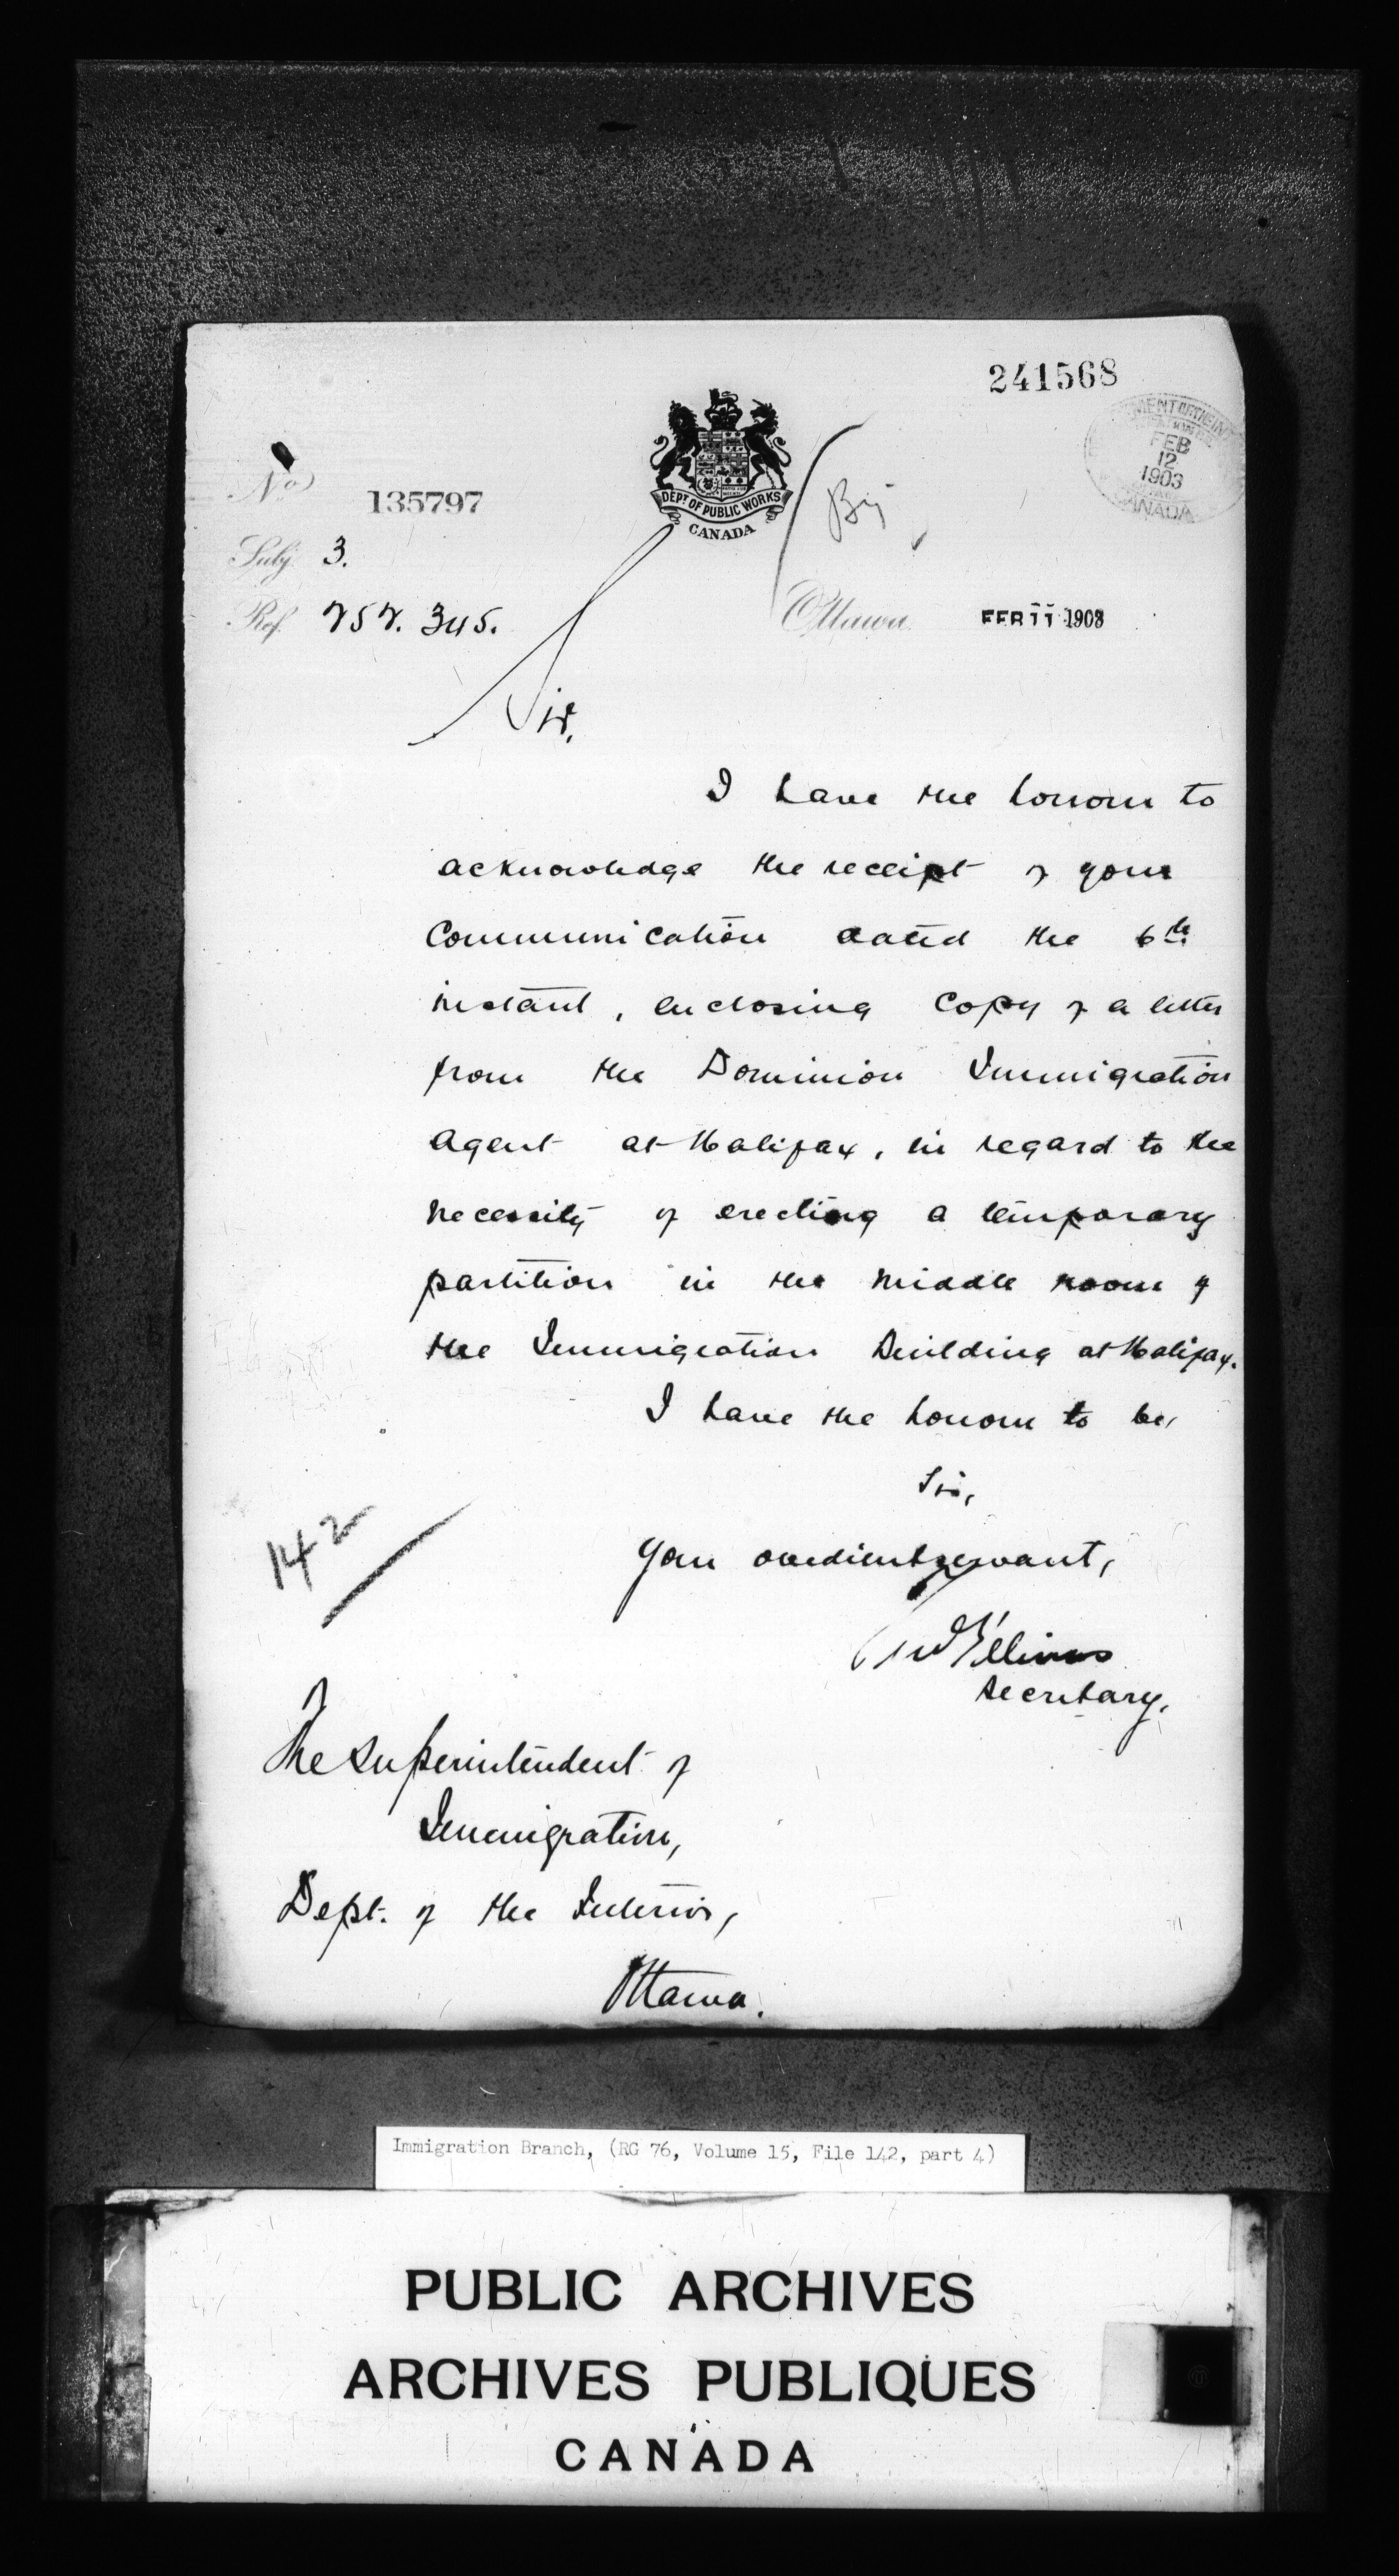 241568
DEPARTMENT OF THE INTERIOR
FEB
12
1903
CANADA
DEPT OF PUBLIC WORKS
CANADA
No 135797
Subj. 3.
Ref. 257. 345.
Ottawa FEB 11 1903
Sir,
I have the honour to
acknowledge the receipt of your
communication dated the 6th
instant, enclosing copy of a letter
from the Dominion Immigration
Agent at Halifax, in regard to the
necessity of erecting a temporary
partition in the middle room of
the Immigration Building at Halifax.
I have the honour to be,
Sir,
Your obedient servant,
Secretary.
142
The Superintendent of
Immigration,
Dept. of the Interior,
Ottawa.
Immigration Branch, (RG 76, Volume 15, File 142, part 4)
PUBLIC ARCHIVES
ARCHIVES PUBLIQUES
CANADA